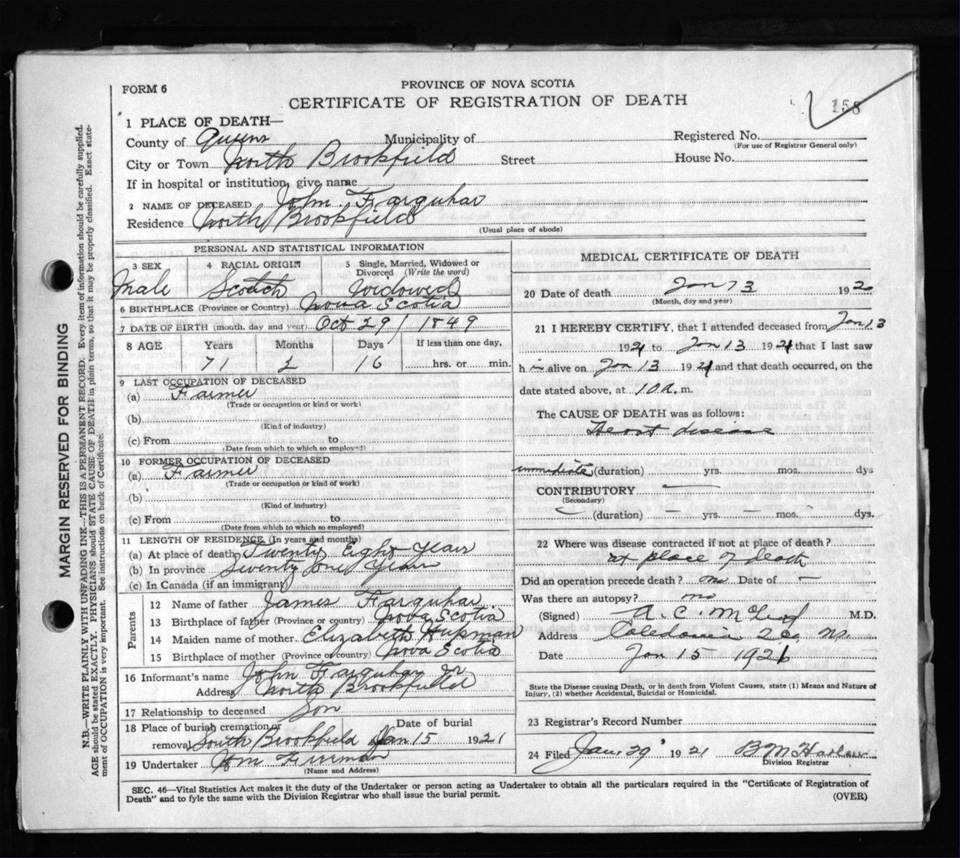 FORM 6
PROVINCE OF NOVA SCOTIA
CERTIFICATE OF REGISTRATION OF DEATH
158
1 PLACE OF DEATH—
County of Queens Municipality of Registered No.
(For use of Registrar General only)
City or Town North Brookfield Street House No.
If in hospital or institution, give name
2 NAME OF DECEASED John Farquhar
Residence North Brookfield
(Usual place of abode)
PERSONAL AND STATISTICAL INFORMATION
3 SEX 4 RACIAL ORIGIN 5 Single, Married, Widowed or Divorced (Write the word)
Male Scotch Widowed
6 BIRTHPLACE (Province or Country) Nova Scotia
7 DATE OF BIRTH (month, day and year) Oct 29/ 1849
8 AGE Years Months Days If less than one day,
71 2 16 hrs. or min.
9 LAST OCCUPATION OF DECEASED
(a) Farmer
(Trade or occupation or kind or work)
(b)
(Kind of industry)
(c) From to
(Date from which to which so employed)
10 FORMER OCCUPATION OF DECEASED
(a) Farmer
(Trade or occupation or kind of work)
(b)
(Kind of industry)
(c) From to
(Date from which to which so employed)
11 LENGTH OF RESIDENCE (In years and months)
(a) At place of death Twenty Eight Years
(b) In province Seventy one Years
(c) In Canada (if an immigrant)
Parents
12 Name of father James Farquhar
13 Birthplace of father (Province or country) Nova Scotia
14 Maiden name of mother Elizabeth Hupman
15 Birthplace of mother (Province or country) Nova Scotia
16 Informant's name John Farquhar Jr
Address North Brookfield
17 Relationship to deceased Son
18 Place of burial cremation or removal South Brookfield Date of burial Jan 15 1921
19 Undertaker Wm
(Name and Address)
MEDICAL CERTIFICATE OF DEATH
20 Date of death Jan 13 192
(Month, day and year)
21 I HEREBY CERTIFY, that I attended deceased from Jan 13
1921 to Jan 13 1921 that I last saw
h alive on Jan 13 1921 and that death occurred, on the
date stated above, at 10 a. m.
The CAUSE OF DEATH was as follows:
Heart disease
immediate (duration) yrs. mos. dys
CONTRIBUTORY —
(Secondary)
— (duration) — yrs. — mos. — dys.
22 Where was disease contracted if not at place of death?
at place of death
Did an operation precede death? no Date of —
Was there an autopsy? no
(Signed) A. C. McLeod M.D.
Address Caledonia NS.
Date Jan 15 1921
State the Disease causing Death, or in death from Violent Causes, state (1) Means and Nature of
Injury, (2) whether Accidental, Suicidal or Homicidal.
23 Registrar's Record Number
24 Filed Jan. 29' 1921 B M Harlow
Division Registrar
SEC. 46—Vital Statistics Act makes it the duty of the Undertaker or person acting as Undertaker to obtain all the particulars required in the "Certificate of Registration of
Death" and to fyle the same with the Division Registrar who shall issue the burial permit.
(OVER)
MARGIN RESERVED FOR BINDING
N.B.—WRITE PLAINLY WITH UNFADING INK—THIS IS A PERMANENT RECORD. Every item of information should be carefully supplied.
AGE should be stated EXACTLY. PHYSICIANS should STATE CAUSE OF DEATH in plain terms, so that it may be properly classified. Exact state-
ment of OCCUPATION is very important. See instructions on back of Certificate.